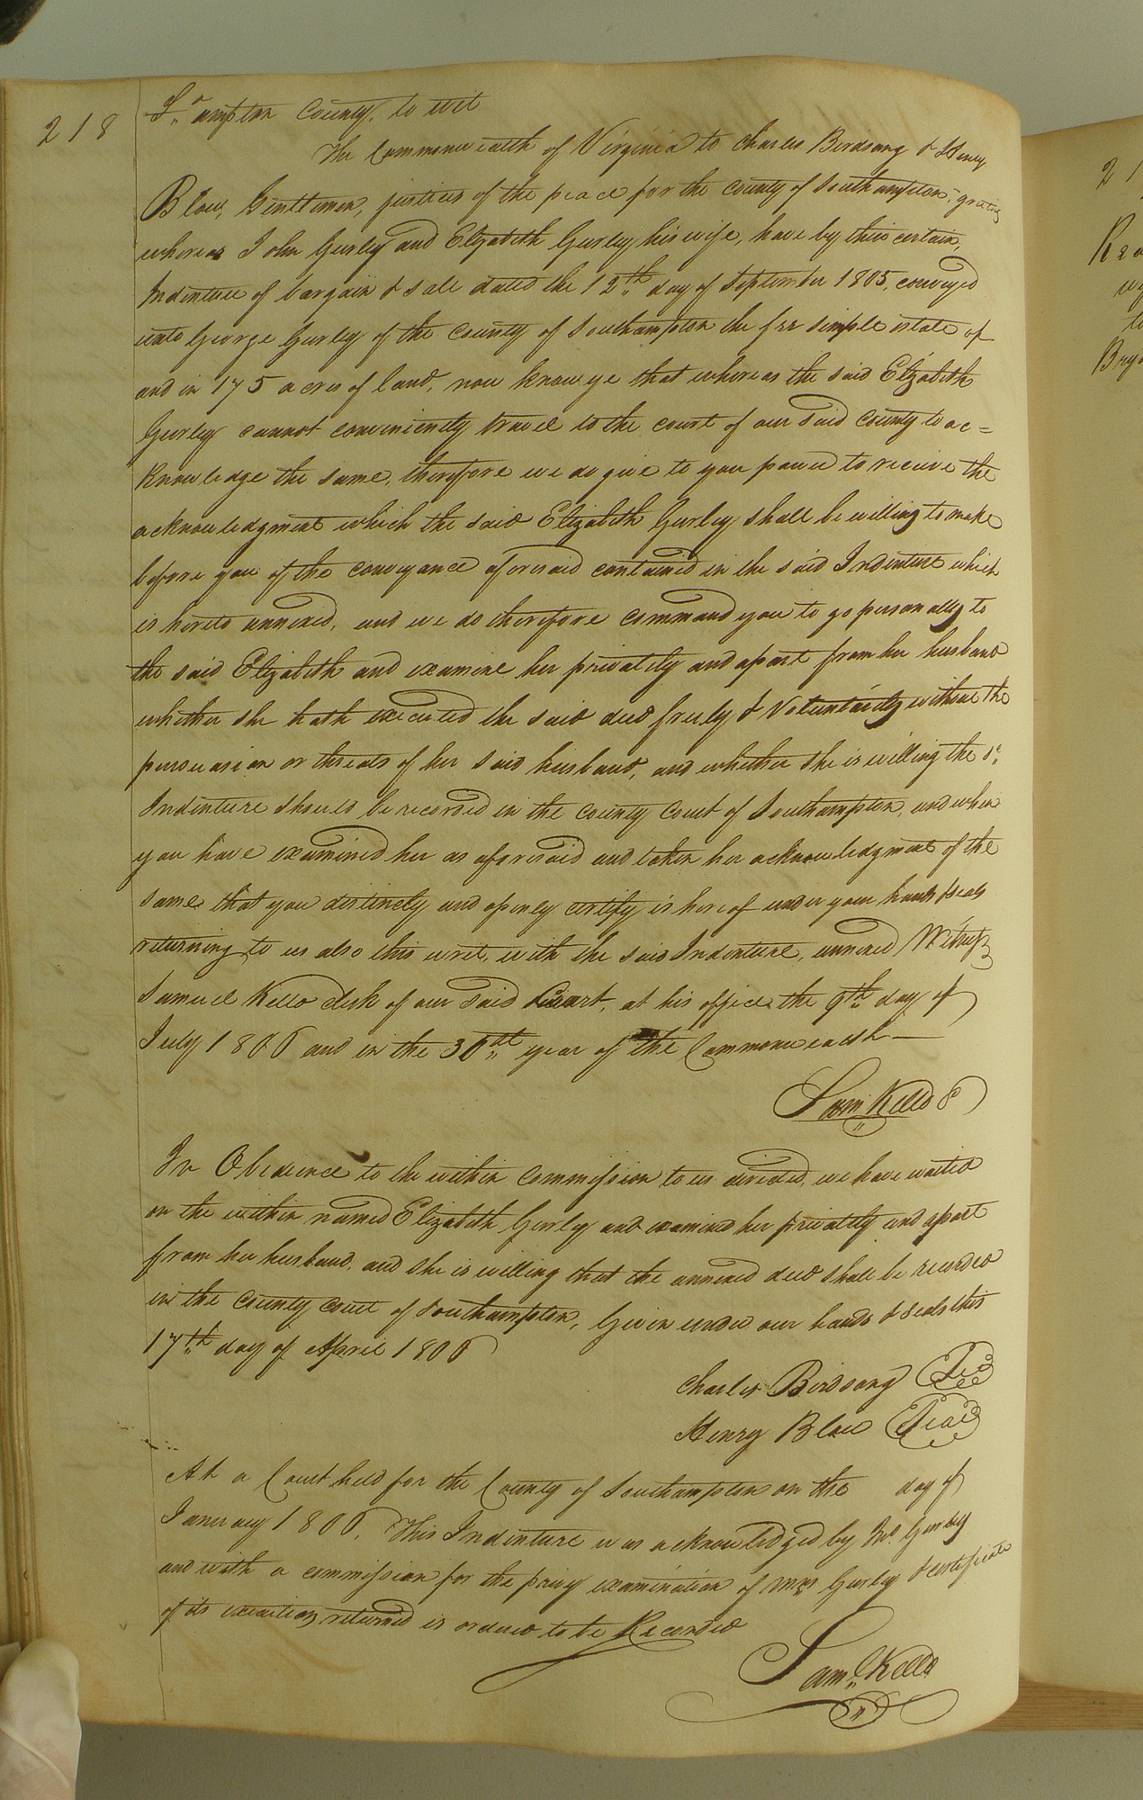 218
S.ampton County, to wit
The Commonwealth of Virginia to Charles Birdsong & Henry
Blow, Gentlemen, justices of the peace for the county of Southampton, greeting
whereas John Gurley and Elizabeth Gurley his wife, have by their certain
Indenture of bargain & sale dated the 12th day of September 1805, conveyed
unto George Gurley of the County of Southampton the fee simple estate of
and in 175 acres of land, now know ye that whereas the said Elizabeth
Gurley cannot conveniently travel to the court of our said county to ac=
knowledge the same, therefore we do give to you power to receive the
acknowledgment which the said Elizabeth Gurley shall be willing to make
before you of the conveyance aforesaid contained in the said Indenture which
is hereto annexed, and we do therefore command you to go personally to
the said Elizabeth and examine her privately and apart from her husband
whether she hath executed the said deed freely & Voluntarily without the
persuasion or threats of her said husband, and whether she is willing the sd.
Indenture should be recorded in the county court of Southampton, and when
you have examined her as aforesaid and taken her acknowledgment of the
same that you distinctly and openly certify us hereof under your hands & seals
returning to us also this writ, with the said Indenture, annexed Witness
Samuel Kello clerk of our said Court, at his office the 9th day of
July 1806 and in the 30th year of the Commonwealth
Sam Kello
In Obedience to the within Commission to us directed, we have waited
on the within named Elizabeth Gurley and examined her privately and apart
from her husband, and she is willing that the annexed deed shall be recorded
in the county court of Southampton, Given under our hands & seals this
17th day of April 1806
Charles Birdsong Seal
Henry Blow Seal
At a Court held for the County of Southampton on the day of
January 1806. This Indenture was acknowledged by Jno. Gurley
and with a commission for the privy examination of Mrs Gurley & certificate
of its execution returned is ordered to be Recorded
Saml. Kello